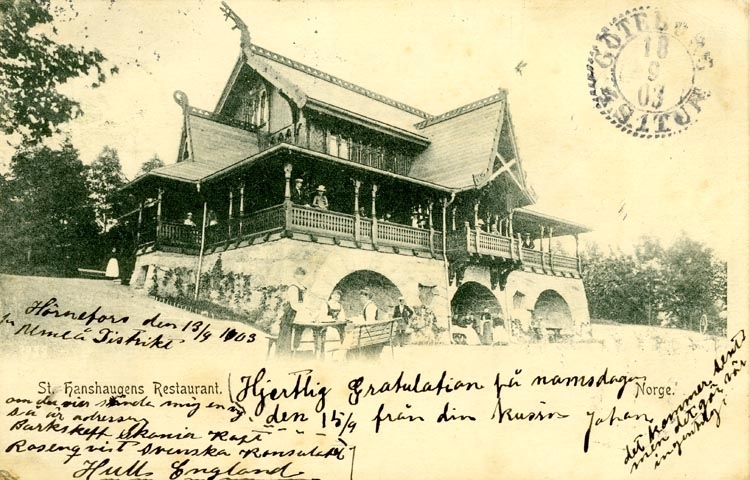 GÖTEBORG
18
9
03
SITUR
Hörnefors den 13/9 1903
Umeå Distrikt
St. Hanshaugens Restaurant.
Norge.
(Hjertlig Gratulation på namsdagen
den 15/9 från din kusin Johan
om du vier sända mig en
så är adressen
Barkskepp Skania Kapt
Rosenqvist Svenska Konsulatet)
Hull England
det kommer sent
men det gör väl
ingenting